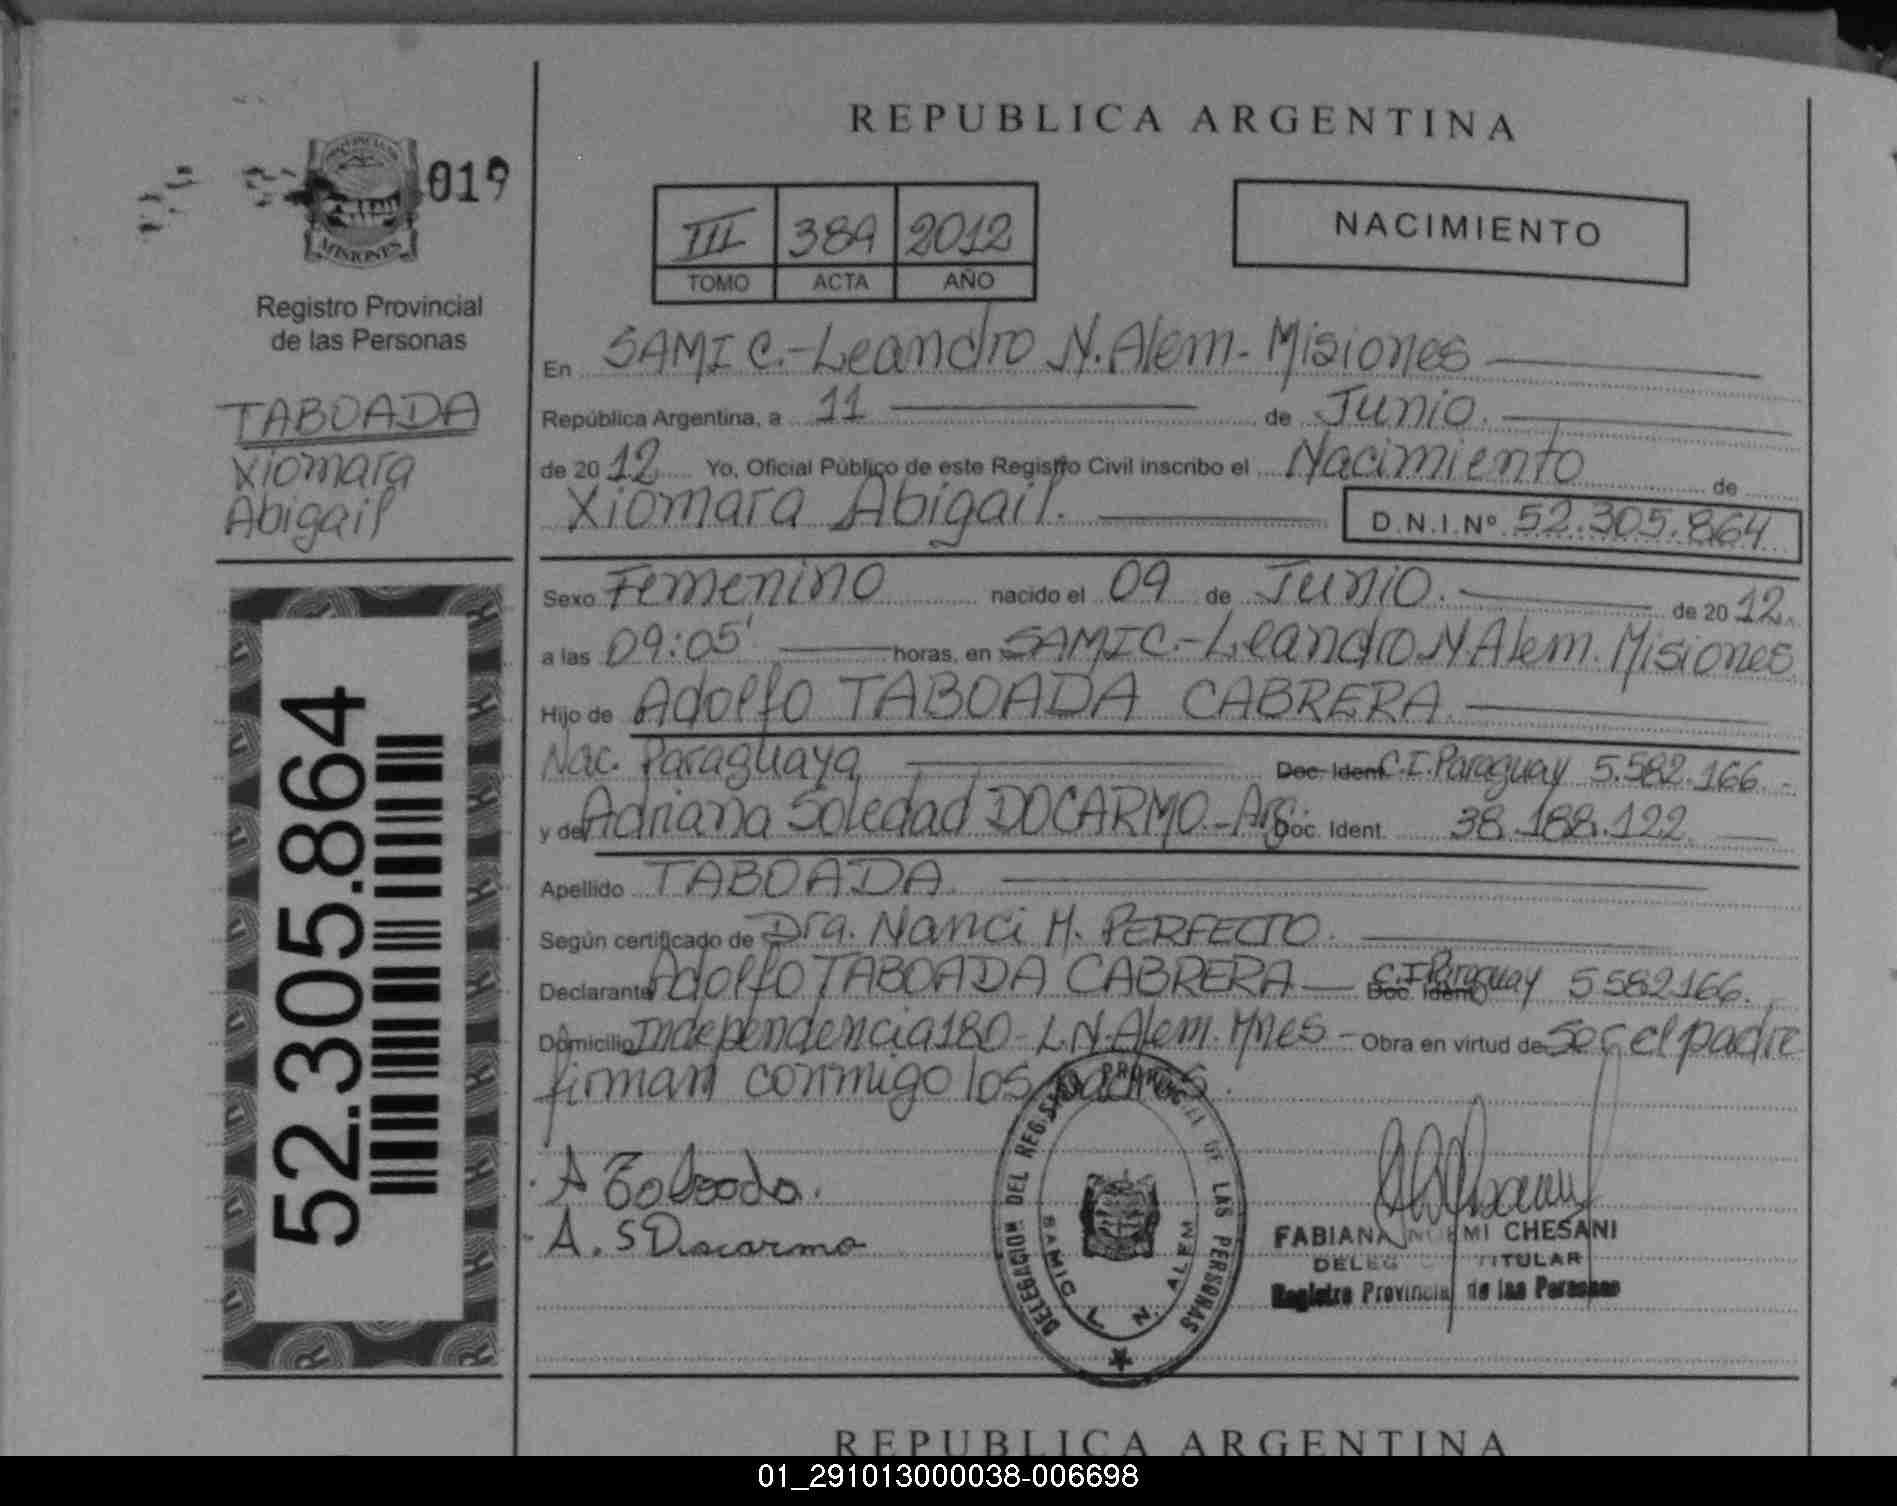 REPUBLICA ARGENTINA
019
PROVINCIA DE
MISIONES
Registro Provincial
de las Personas
TABOADA
Xiomara
Abigail
52.305.864
III 389 2012
TOMO ACTA AÑO
NACIMIENTO
En SAMIC.-Leandro N. Alem.- Misiones
República Argentina, a 11 de Junio.
de 2012 Yo, Oficial Público de este Registro Civil inscribo el Nacimiento de
Xiomara Abigail. D.N.I.Nº 52.305.864
Sexo Femenino nacido el 09 de Junio. de 2012.
a las 09:05' horas, en SAMIC.-Leandro N Alem. Misiones.
Hijo de Adolfo TABOADA CABRERA.
Nac. Paraguaya Doc. Ident C.I. Paraguay 5.582.166.-
y de Adriana Soledad DOCARMO.-Arg. Doc. Ident. 38.188.122.
Apellido TABOADA.
Según certificado de Dra. Nanci M. PERFECTO.
Declarante Adolfo TABOADA CABRERA- Doc. Ident C.I Paraguay 5582166.
Domicilio Independencia 180- L.N.Alem. Mnes - Obra en virtud de Ser el padre
firman conmigo los padres.
A Taboada.
A. S Docarmo
DELEGACION DEL REGISTRO PROVINCIAL DE LAS PERSONAS
SAMIC L. N. ALEM
FABIANA NOEMI CHESANI
TITULAR
Registro Provincial de las Personas
REPUBLICA ARGENTINA
01_291013000038-006698